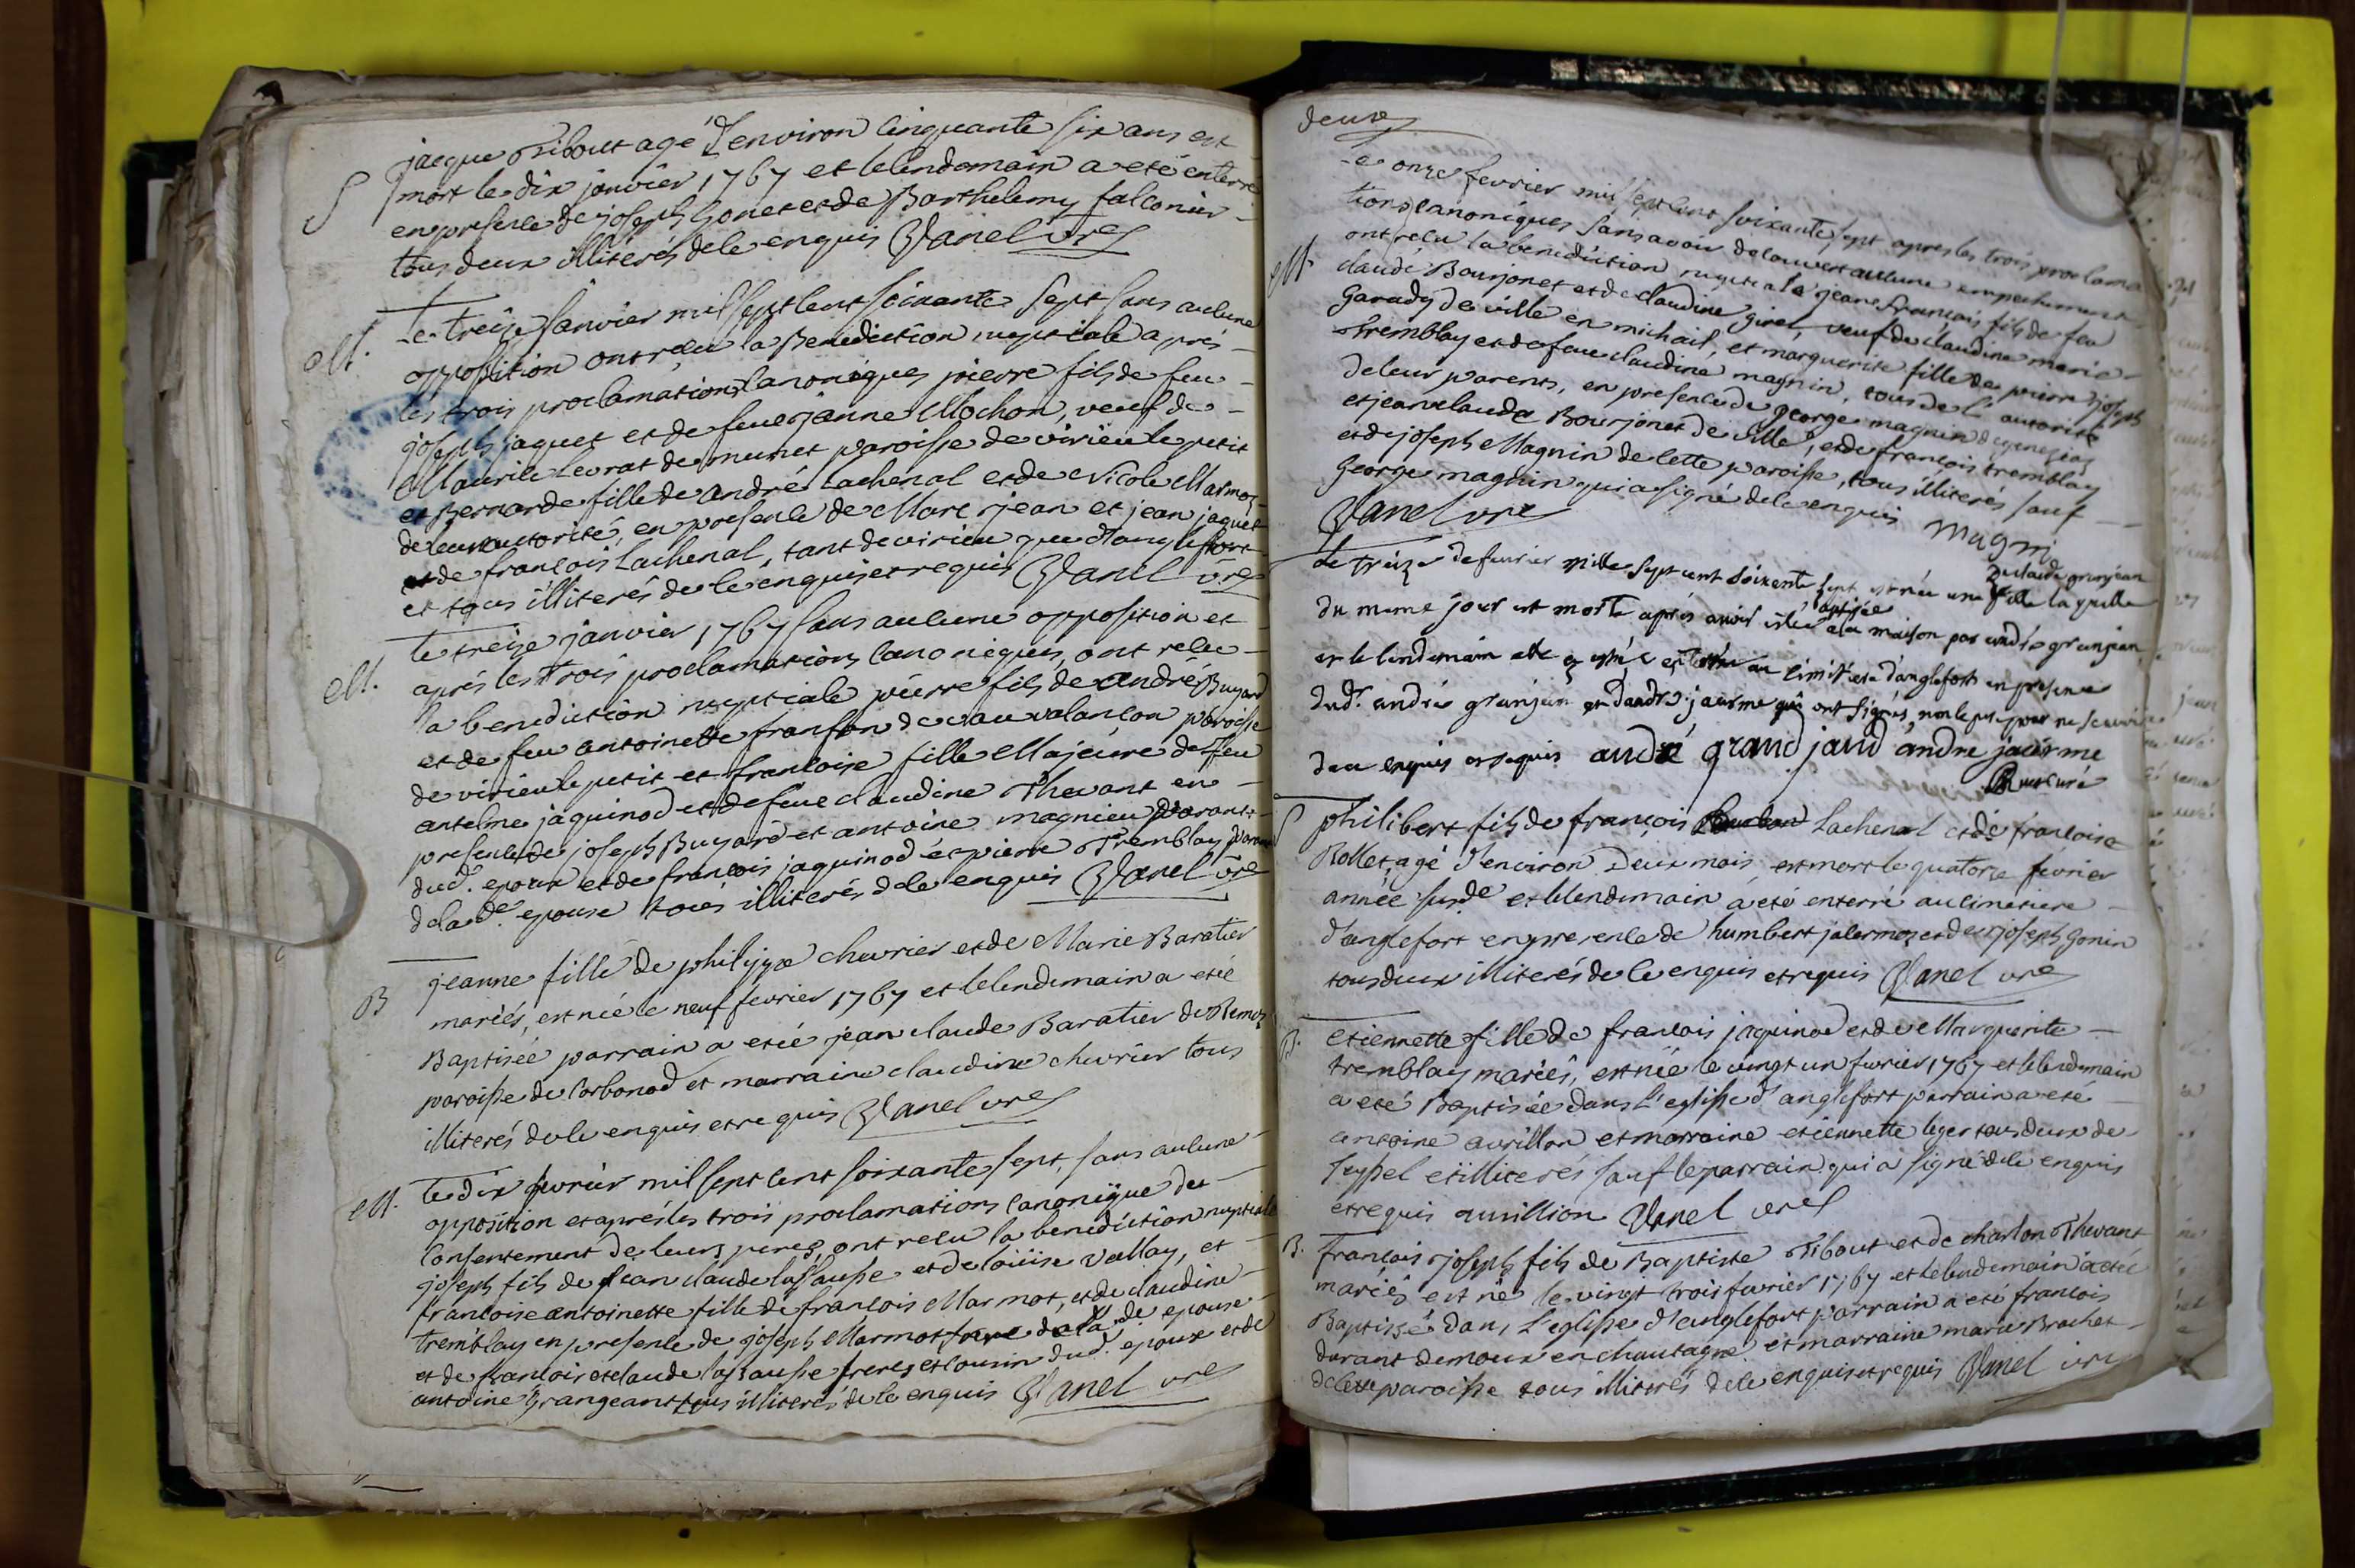 S jacque Tibout agé d'environ cinquante six ans est
mort le dix janvier 1767 et le lendemain a eté enterré
en presence de joseph Gonet et de Barthelemy falconier
tous deux illiterés de ce enquis Vanel curé
M. Le treize janvier mil sept cent soixante sept sans aucune
opposition ont reçu la Benediction nuptiale après
les trois proclamations canoniques pierre fils de feu
joseph jaquet et de feue janne Mochon, veuf de
Maurile Levrat de munet paroisse de virieu le petit
et Bernarde fille de andré Lachenal et de Nicole Marmoz
de leur autorité, en presence de Marc jean et jean jaquet
et de francois Lachenal, tant de virieu que d'anglefort
et tous illiterés de ce enquis et requis Vanel curé
M. Le treize janvier 1767 sans aucune opposition et
après les trois proclamations canoniques, ont recu
la benediction nuptiale pierre fils de andré Bugard
et de feu antoinette franson de vauvalancon paroisse
de virieu le petit et francoise fille Majeure de feu
antelme jaquinod et de feue claudine Thevant en
presence de joseph Bugard et antoine magnieu parants
dud. epoux et de francois jaquinod et pierre Tremblay parans
de la de. epouse tous illiterés de ce enquis Vanel curé
B jeanne fille de philippe chevrier et de Marie Baratier
mariés, est née le neuf fevrier 1767 et le lendemain a eté
Baptisée parrain a eté jean claude Baratier de Remoz
paroisse de Corbonod et marraine claudine chevrier tous
illiterés de ce enquis et requis Vanel curé
M. Le dix fevrier mil sept cent soixante sept, sans aucune
opposition et après les trois proclamations canonique du
consentement de leurs peres, ont recu la benediction nuptiale
joseph fils de jean claude lassausse et de loüise Vallay, et
francoise antoinette fille de francois Marmot, et de claudine
tremblay en presence de joseph Marmot frere de la de. epouse
et de francois et claude lassausse freres et cousin dud. epoux et de
antoine Grangeant tous illiterés de ce enquis Vanel curé
deux
Le onze fevrier mil sept cent soixante sept après les trois proclama
tions canoniques sans avoir decouvert aucune empechement
M. ont recu la benediction nuptiale jean francois fils de feu
claude Bourjonet et de claudine girel, veuf de claudine marie
Garady de ville en michail, et marguerite fille de pierre joseph
tremblay et de feue claudine magnin, tous de l'autorité
de leur parents, en presence de george magnin
et jean claude Bourjonet de ville, et de francois tremblay
et de joseph Magnin de cette paroisse, tous illiterés sauf
George magnin qui a signé de ce enquis
Vanel curé Magni
de claude granjean
Le treize de fevrier mille sept cent soixante sept est née une fille la quelle
baptisée
du meme jour est morte après avoir estée a la maison par andré granjean
et le lendemain elle a estée enterrée au cimitiere d'anglefort en presence
dud. andré granjean et d'andré jaerme qui ont signés, non le pere pour ne scavoir
de ce enquis et requis andré grand jand andre jaerme
curé
S philibert fils de francois Lachenal et de francoise
Rollet agé d'environ deux mois, est mort le quatorze fevrier
année susde. et le lendemain a eté enterré au cimetiere
d'anglefort en presence de humbert jalermoz et de joseph Gonin
tous deux illiterés de ce enquis et requis Vanel curé
B. etiennette fille de francois jaquinod et de Marguerite
tremblay mariés, est née le vingt un fevrier 1767 et le lendemain
a eté Baptisée dans l'eglise d'anglefort parrain a eté
antoine avrillon et marraine etiennette leger tous deux de
seyssel et illiterés sauf le parrain qui a signé de ce enquis
et requis avrillion Vanel curé
B. francois joseph fils de Baptiste Tibout et de charlon Thevant
mariés est né le vingt trois fevrier 1767 et le lendemain a eté
Baptisé dans l'eglise d'anglefort parrain a eté francois
durant de moux en chautagne et marraine marie Brachet
de cette paroisse tous illiterés de ce enquis et requis Vanel curé